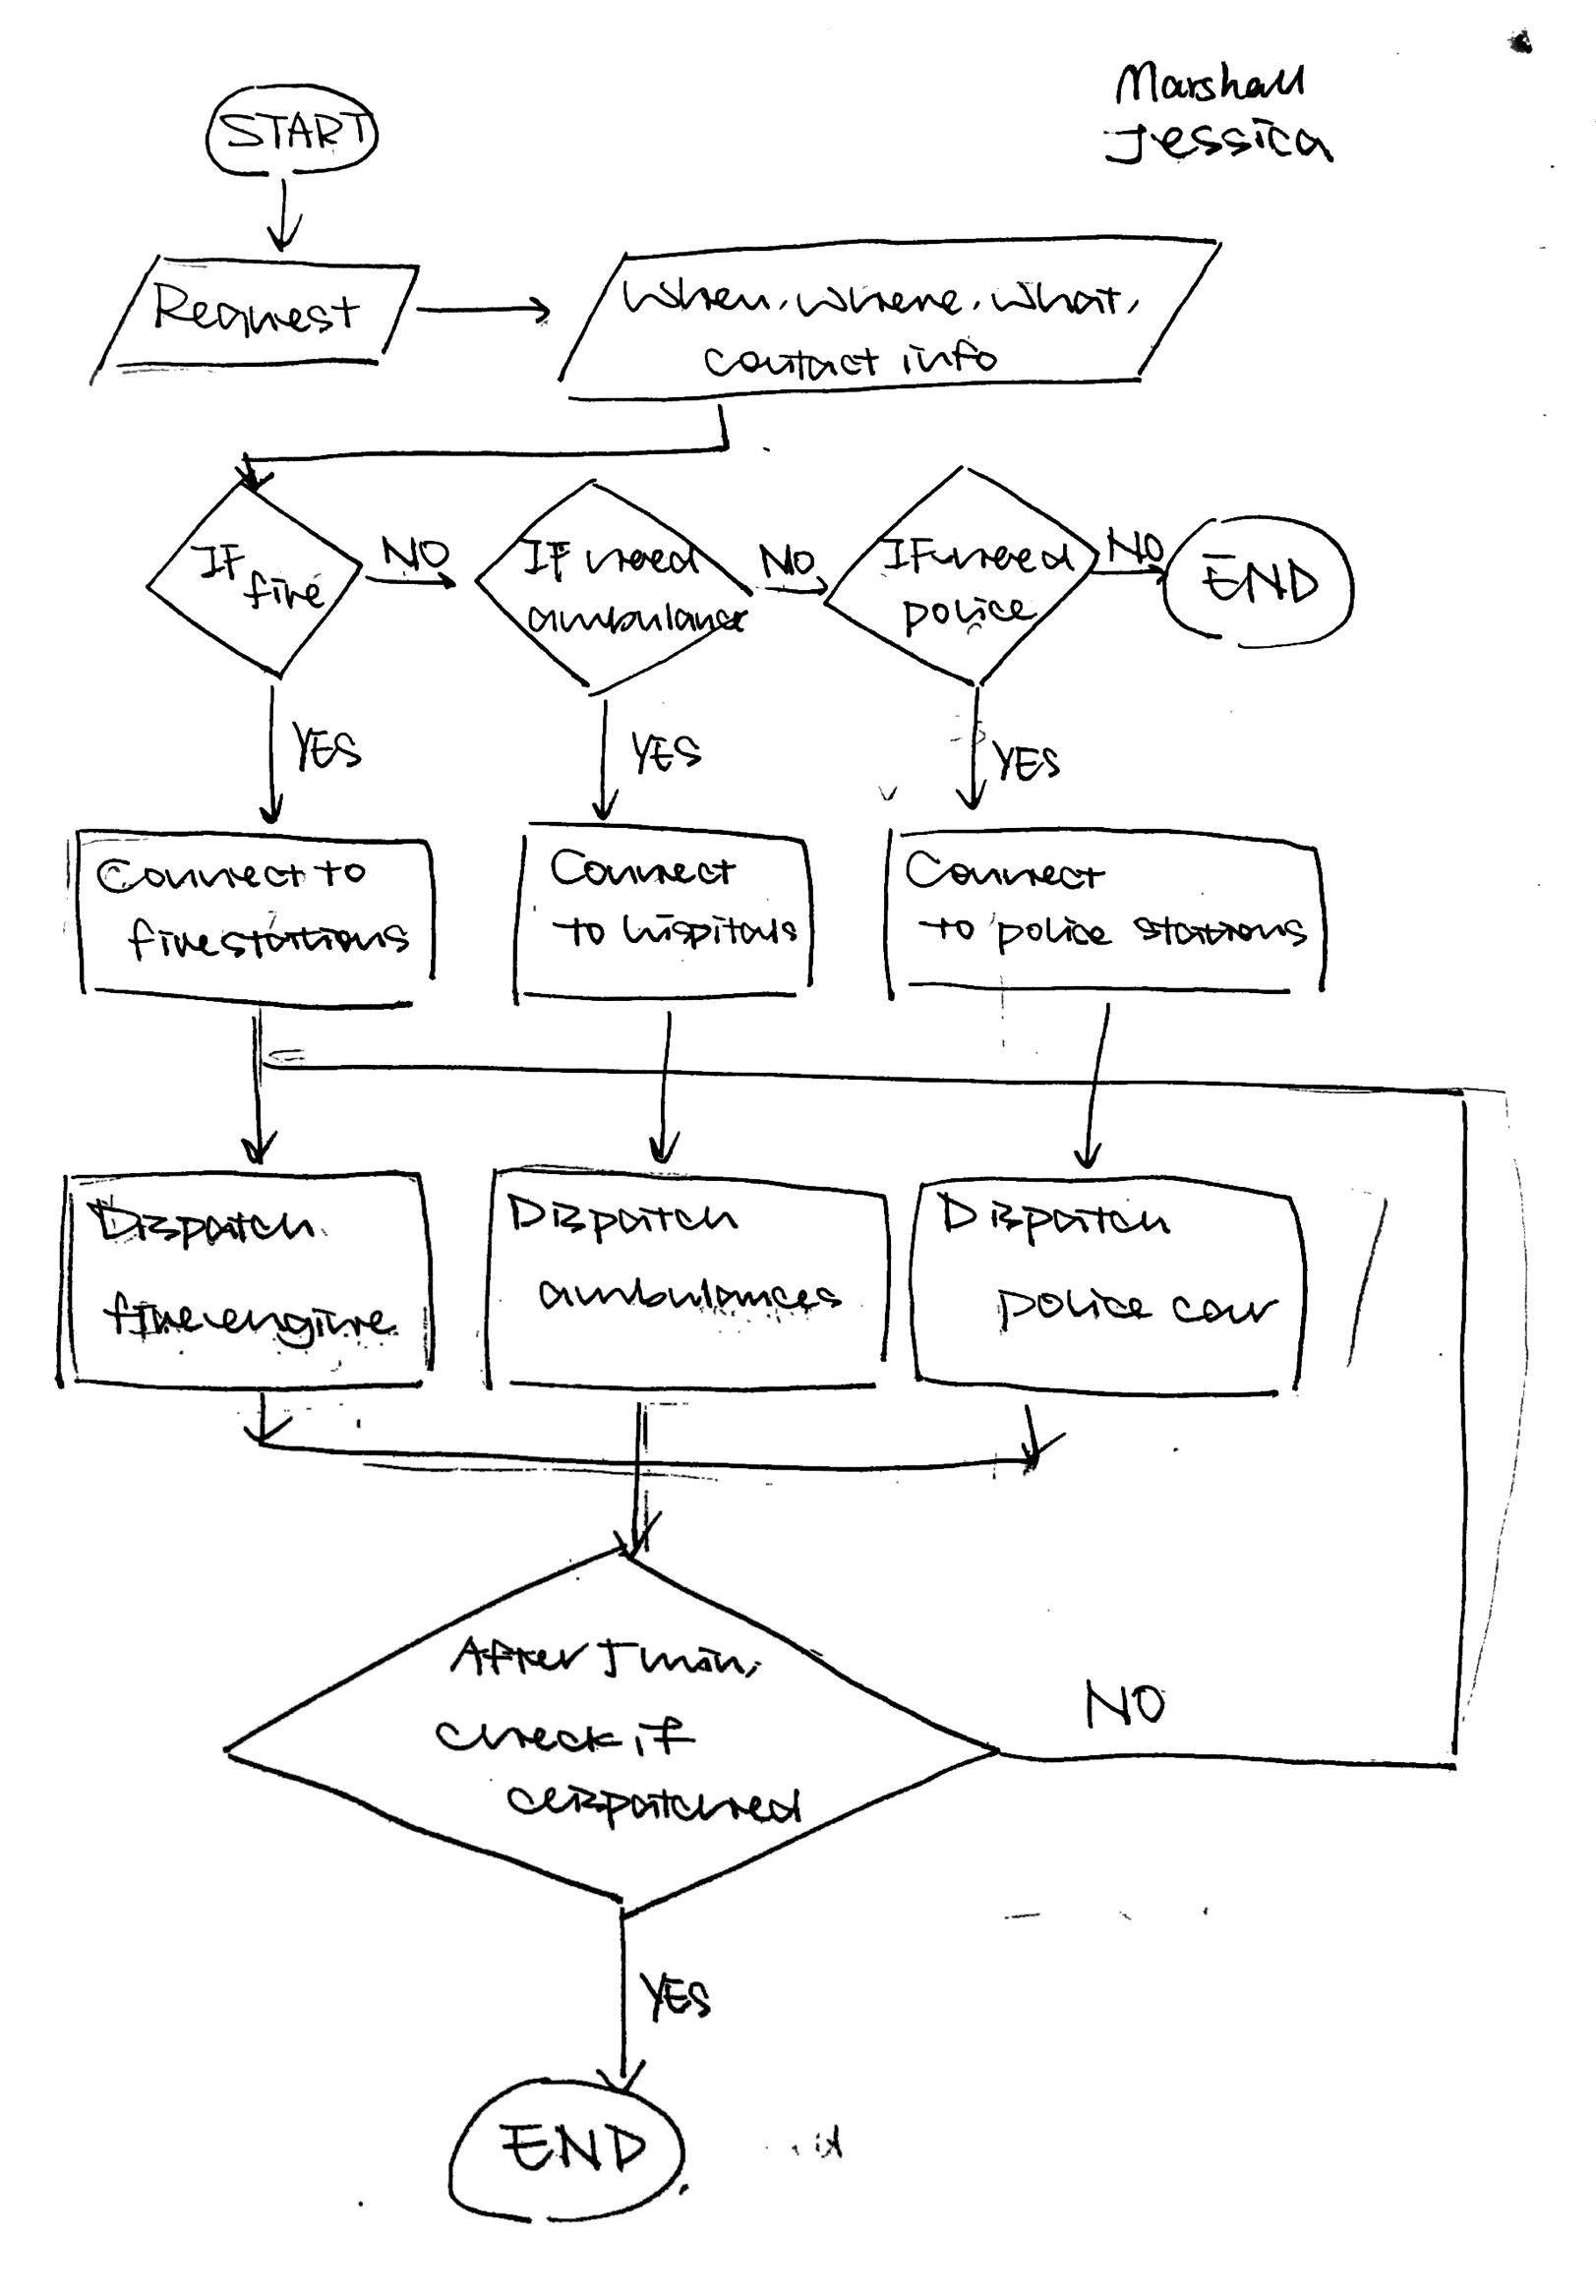 Marshall
Jessica
START
Request
When, where, what,
contact info
IF
fire
NO
IF need
ambulance
NO
IF need
police
NO
END
YES
YES
YES
Connect to
fire stations
Connect
to hispitals
Connect
to police stations
Dispatch
fire engine
Dispatch
ambulances
Dispatch
police car
After
min,
check if
dispatched
NO
YES
END